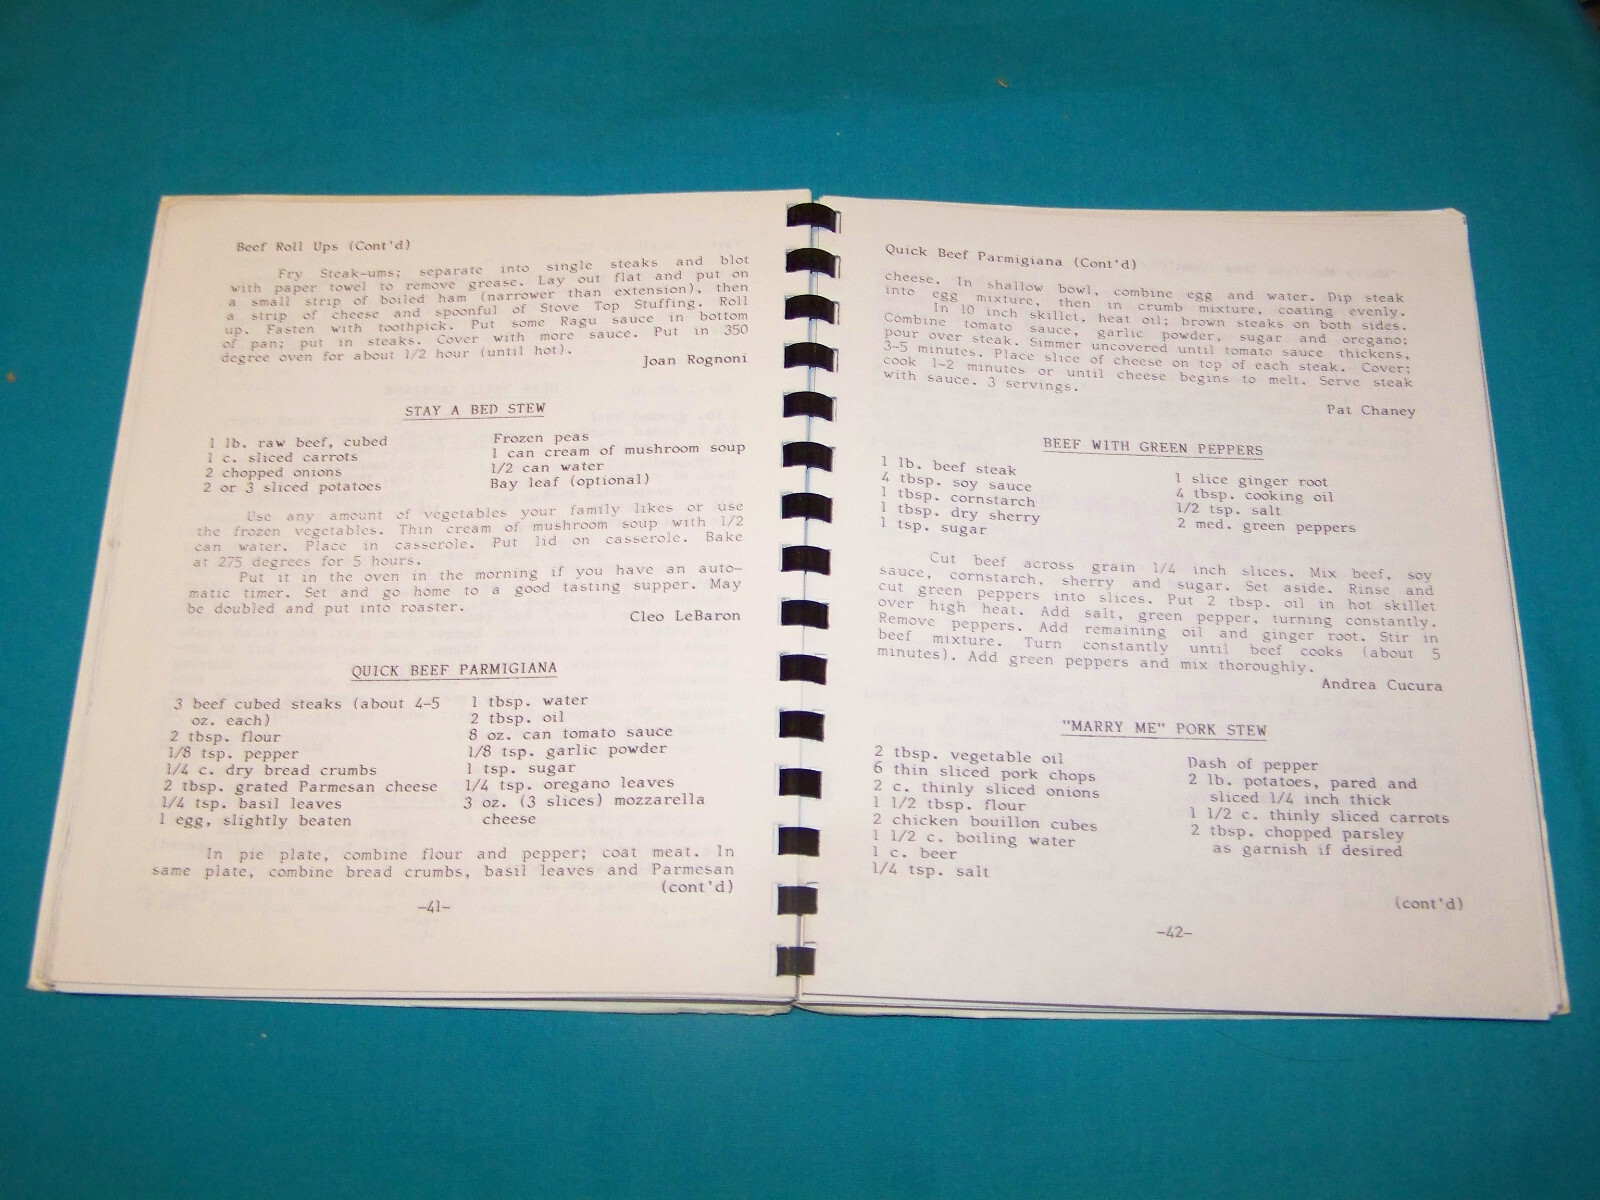 Beef Roll Ups (Cont'd)
Fry Steak-ums; separate into single steaks and blot
with paper towel to remove grease. Lay out flat and put on
a small strip of boiled ham (narrower than extension), then
a strip of cheese and spoonful of Stove Top Stuffing. Roll
up. Fasten with toothpick. Put some Ragu sauce in bottom
of pan; put in steaks. Cover with more sauce. Put in 350
degree oven for about 1/2 hour (until hot).
Joan Rognoni
STAY A BED STEW
1 lb. raw beef, cubed
1 c. sliced carrots
2 chopped onions
2 or 3 sliced potatoes
Frozen peas
1 can cream of mushroom soup
1/2 can water
Bay leaf (optional)
Use any amount of vegetables your family likes or use
the frozen vegetables. Thin cream of mushroom soup with 1/2
can water. Place in casserole. Put lid on casserole. Bake
at 275 degrees for 5 hours.
Put it in the oven in the morning if you have an auto-
matic timer. Set and go home to a good tasting supper. May
be doubled and put into roaster.
Cleo LeBaron
QUICK BEEF PARMIGIANA
3 beef cubed steaks (about 4-5
oz. each)
2 tbsp. flour
1/8 tsp. pepper
1/4 c. dry bread crumbs
2 tbsp. grated Parmesan cheese
1/4 tsp. basil leaves
1 egg, slightly beaten
1 tbsp. water
2 tbsp. oil
8 oz. can tomato sauce
1/8 tsp. garlic powder
1 tsp. sugar
1/4 tsp. oregano leaves
3 oz. (3 slices) mozzarella
cheese
In pie plate, combine flour and pepper; coat meat. In
same plate, combine bread crumbs, basil leaves and Parmesan
(cont'd)
-41-
Quick Beef Parmigiana (Cont'd)
cheese. In shallow bowl, combine egg and water. Dip steak
into egg mixture, then in crumb mixture, coating evenly.
In 10 inch skillet, heat oil; brown steaks on both sides.
Combine tomato sauce, garlic powder, sugar and oregano;
pour over steak. Simmer uncovered until tomato sauce thickens,
3-5 minutes. Place slice of cheese on top of each steak. Cover;
cook 1-2 minutes or until cheese begins to melt. Serve steak
with sauce. 3 servings.
Pat Chaney
BEEF WITH GREEN PEPPERS
1 lb. beef steak
4 tbsp. soy sauce
1 tbsp. cornstarch
1 tbsp. dry sherry
1 tsp. sugar
1 slice ginger root
4 tbsp. cooking oil
1/2 tsp. salt
2 med. green peppers
Cut beef across grain 1/4 inch slices. Mix beef, soy
sauce, cornstarch, sherry and sugar. Set aside. Rinse and
cut green peppers into slices. Put 2 tbsp. oil in hot skillet
over high heat. Add salt, green pepper, turning constantly.
Remove peppers. Add remaining oil and ginger root. Stir in
beef mixture. Turn constantly until beef cooks (about 5
minutes). Add green peppers and mix thoroughly.
Andrea Cucura
"MARRY ME" PORK STEW
2 tbsp. vegetable oil
6 thin sliced pork chops
2 c. thinly sliced onions
1 1/2 tbsp. flour
2 chicken bouillon cubes
1 1/2 c. boiling water
1 c. beer
1/4 tsp. salt
Dash of pepper
2 lb. potatoes, pared and
sliced 1/4 inch thick
1 1/2 c. thinly sliced carrots
2 tbsp. chopped parsley
as garnish if desired
(cont'd)
-42-